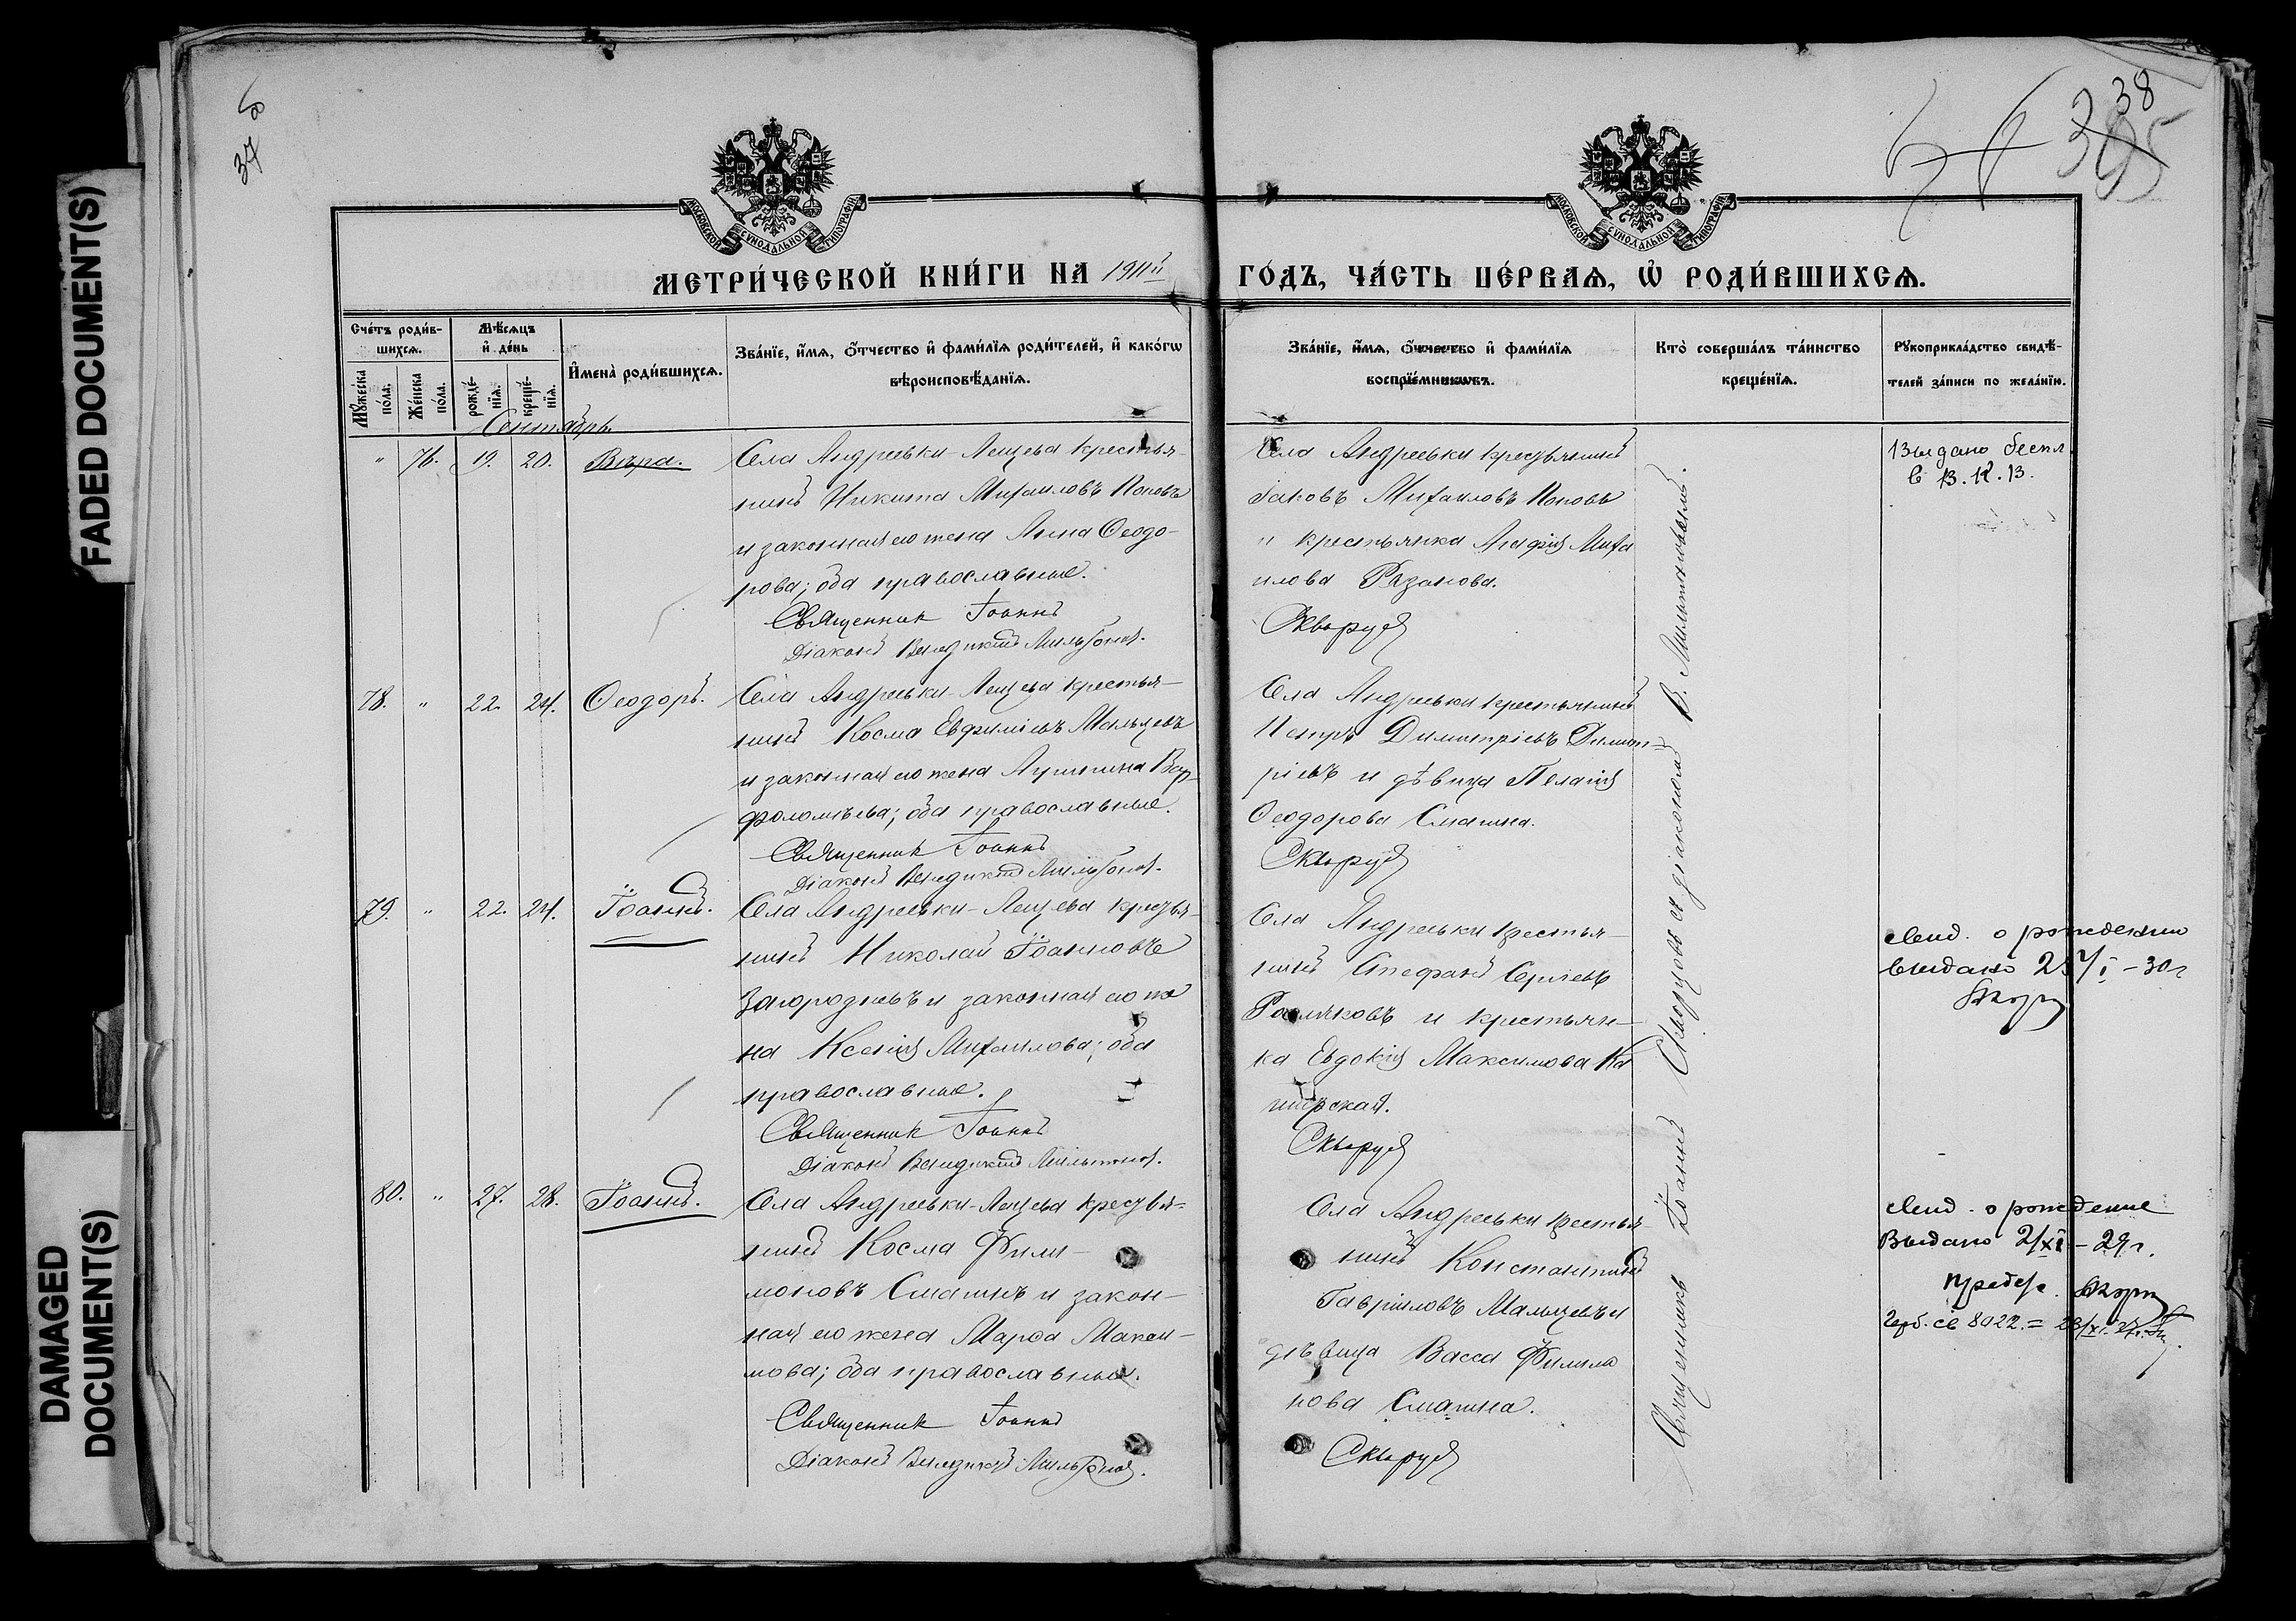 FADED DOCUMENT(S)
DAMAGED
DOCUMENT(S)
37
38
МОСКОВСКОЙ СУНОДАЛЬНОЙ ТИПОГРАФІИ
МОСКОВСКОЙ СУНОДАЛЬНОЙ ТИПОГРАФІИ
МЕТРИ́ЧЕСКОЙ КНИ́ГИ НА 1911й
ГО́ДЪ, ЧА́СТЬ ПЕ́РВАѦ, Ѡ҆ РОДИ́ВШИХСѦ.
Сче́тъ роди́в-
шихсѧ.
Мꙋ́жеска по́ла.
Же́нска по́ла.
Мѣ́сѧцъ
и҆ де́нь
рожде́-
нїѧ.
креще́-
нїѧ.
И҆мена̀ роди́вшихсѧ.
Зва́нїе, и҆́мѧ, ѻ҆́тчество и҆ фами́лїѧ роди́телей, и҆ како́гѡ
вѣроисповѣ́данїѧ.
Зва́нїе, и҆́мѧ, ѻ҆́тчество и҆ фами́лїѧ
воспрїе́мникѡвъ.
Кто̀ соверша́лъ та́инство
креще́нїѧ.
Рꙋкоприкла́дство свидѣ́-
телей за́писи по жела́нїю.
Сентябрь.
" 76. 19. 20. Вѣра.
Села Андреевки-Лещева крестья-
нинъ Никита Михаиловъ Поповъ
и законная его жена Анна Ѳеодо-
рова; оба православные.
Священник Іоаннъ
Діаконъ Венедиктъ Мильтонов.
Села Андреевки крестьянинъ
Іаковъ Михаиловъ Поповъ
и крестьянка Агафія Миха
илова Рязанова.
Скворцов
Выдано беспл
78. " 22. 24. Ѳеодоръ.
Села Андреевки-Лещева крестья-
нинъ Косма Евфиміевъ Мальцевъ
и законная его жена Агрипина Вар-
фоломѣева; оба православные.
Священник Іоаннъ
Діаконъ Венедиктъ Мильтонов.
Села Андреевки крестьянинъ
Петръ Димитріевъ Димит-
ріевъ и дѣвица Пелагія
Ѳеодорова Смагина.
Скворцов
79. " 22. 24. Іоаннъ.
Села Андреевки-Лещева крестья-
нинъ Николай Іоанновъ
Загородневъ и законная его же
на Ксенія Михаилова; оба
православные.
Священник Іоаннъ
Діаконъ Венедиктъ Мильтонов.
Села Андреевки крестья-
нинъ Стефанъ Сергіевъ
и крестьян-
ка Евдокія Максимова Ка
ширская.
Скворцов
свид. о рождении
выдано
– 30г
80. " 27. 28. Іоаннъ.
Села Андреевки-Лещева крестья-
нинъ Косма Фили-
моновъ Смагинъ и закон-
ная его жена Марѳа Макси-
мова; оба православные.
Священник Іоаннъ
Діаконъ Венедиктъ Мильтонов.
Села Андреевки крестья-
нинъ Константинъ
Гавріиловъ Мальцевъ и
дѣвица Васса Филимо
нова Смагина.
Скворцов
свид. о рождение
Выдано 2/XI – 29г.
Священникъ Іоаннъ Скворцовъ съ діакономъ В. Мильтоновымъ.